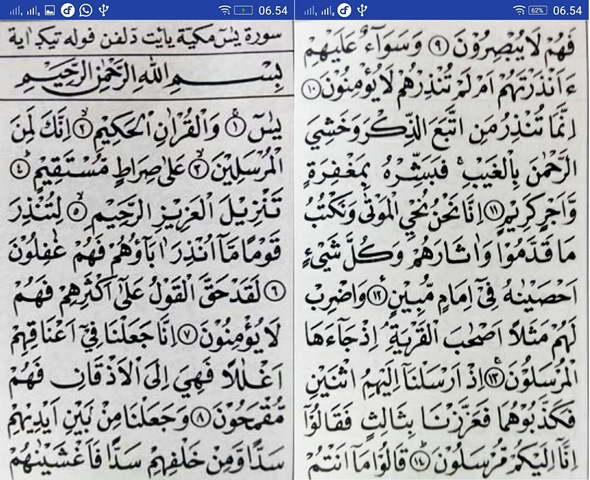 06.54
سورة يسٓ مكية
بِسْمِ اللّٰهِ الرَّحْمٰنِ الرَّحِيْمِ
يسٓ ۝١ وَالْقُرْاٰنِ الْحَكِيْمِ ۝٢ اِنَّكَ لَمِنَ
الْمُرْسَلِيْنَ ۝٣ عَلٰى صِرَاطٍ مُّسْتَقِيْمٍ ۝٤
تَنْزِيْلَ الْعَزِيْزِ الرَّحِيْمِ ۝٥ لِتُنْذِرَ
قَوْمًا مَّآ اُنْذِرَ اٰبَآؤُهُمْ فَهُمْ غٰفِلُوْنَ
۝٦ لَقَدْ حَقَّ الْقَوْلُ عَلٰٓى اَكْثَرِهِمْ فَهُمْ
لَا يُؤْمِنُوْنَ ۝٧ اِنَّا جَعَلْنَا فِيْٓ اَعْنَاقِهِمْ
اَغْلٰلًا فَهِيَ اِلَى الْاَذْقَانِ فَهُمْ
مُّقْمَحُوْنَ ۝٨ وَجَعَلْنَا مِنْۢ بَيْنِ اَيْدِيْهِمْ
سَدًّا وَّمِنْ خَلْفِهِمْ سَدًّا فَاَغْشَيْنٰهُمْ
62% 06.54
فَهُمْ لَا يُبْصِرُوْنَ ۝٩ وَسَوَآءٌ عَلَيْهِمْ
ءَاَنْذَرْتَهُمْ اَمْ لَمْ تُنْذِرْهُمْ لَا يُؤْمِنُوْنَ ۝١٠
اِنَّمَا تُنْذِرُ مَنِ اتَّبَعَ الذِّكْرَ وَخَشِيَ
الرَّحْمٰنَ بِالْغَيْبِ فَبَشِّرْهُ بِمَغْفِرَةٍ
وَّاَجْرٍ كَرِيْمٍ ۝١١ اِنَّا نَحْنُ نُحْيِ الْمَوْتٰى وَنَكْتُبُ
مَا قَدَّمُوْا وَاٰثَارَهُمْ وَكُلَّ شَيْءٍ
اَحْصَيْنٰهُ فِيْٓ اِمَامٍ مُّبِيْنٍ ۝١٢ وَاضْرِبْ
لَهُمْ مَّثَلًا اَصْحٰبَ الْقَرْيَةِ اِذْ جَآءَهَا
الْمُرْسَلُوْنَ ۝١٣ اِذْ اَرْسَلْنَآ اِلَيْهِمُ اثْنَيْنِ
فَكَذَّبُوْهُمَا فَعَزَّزْنَا بِثَالِثٍ فَقَالُوْٓا
اِنَّآ اِلَيْكُمْ مُّرْسَلُوْنَ ۝١٤ قَالُوْا مَآ اَنْتُمْ